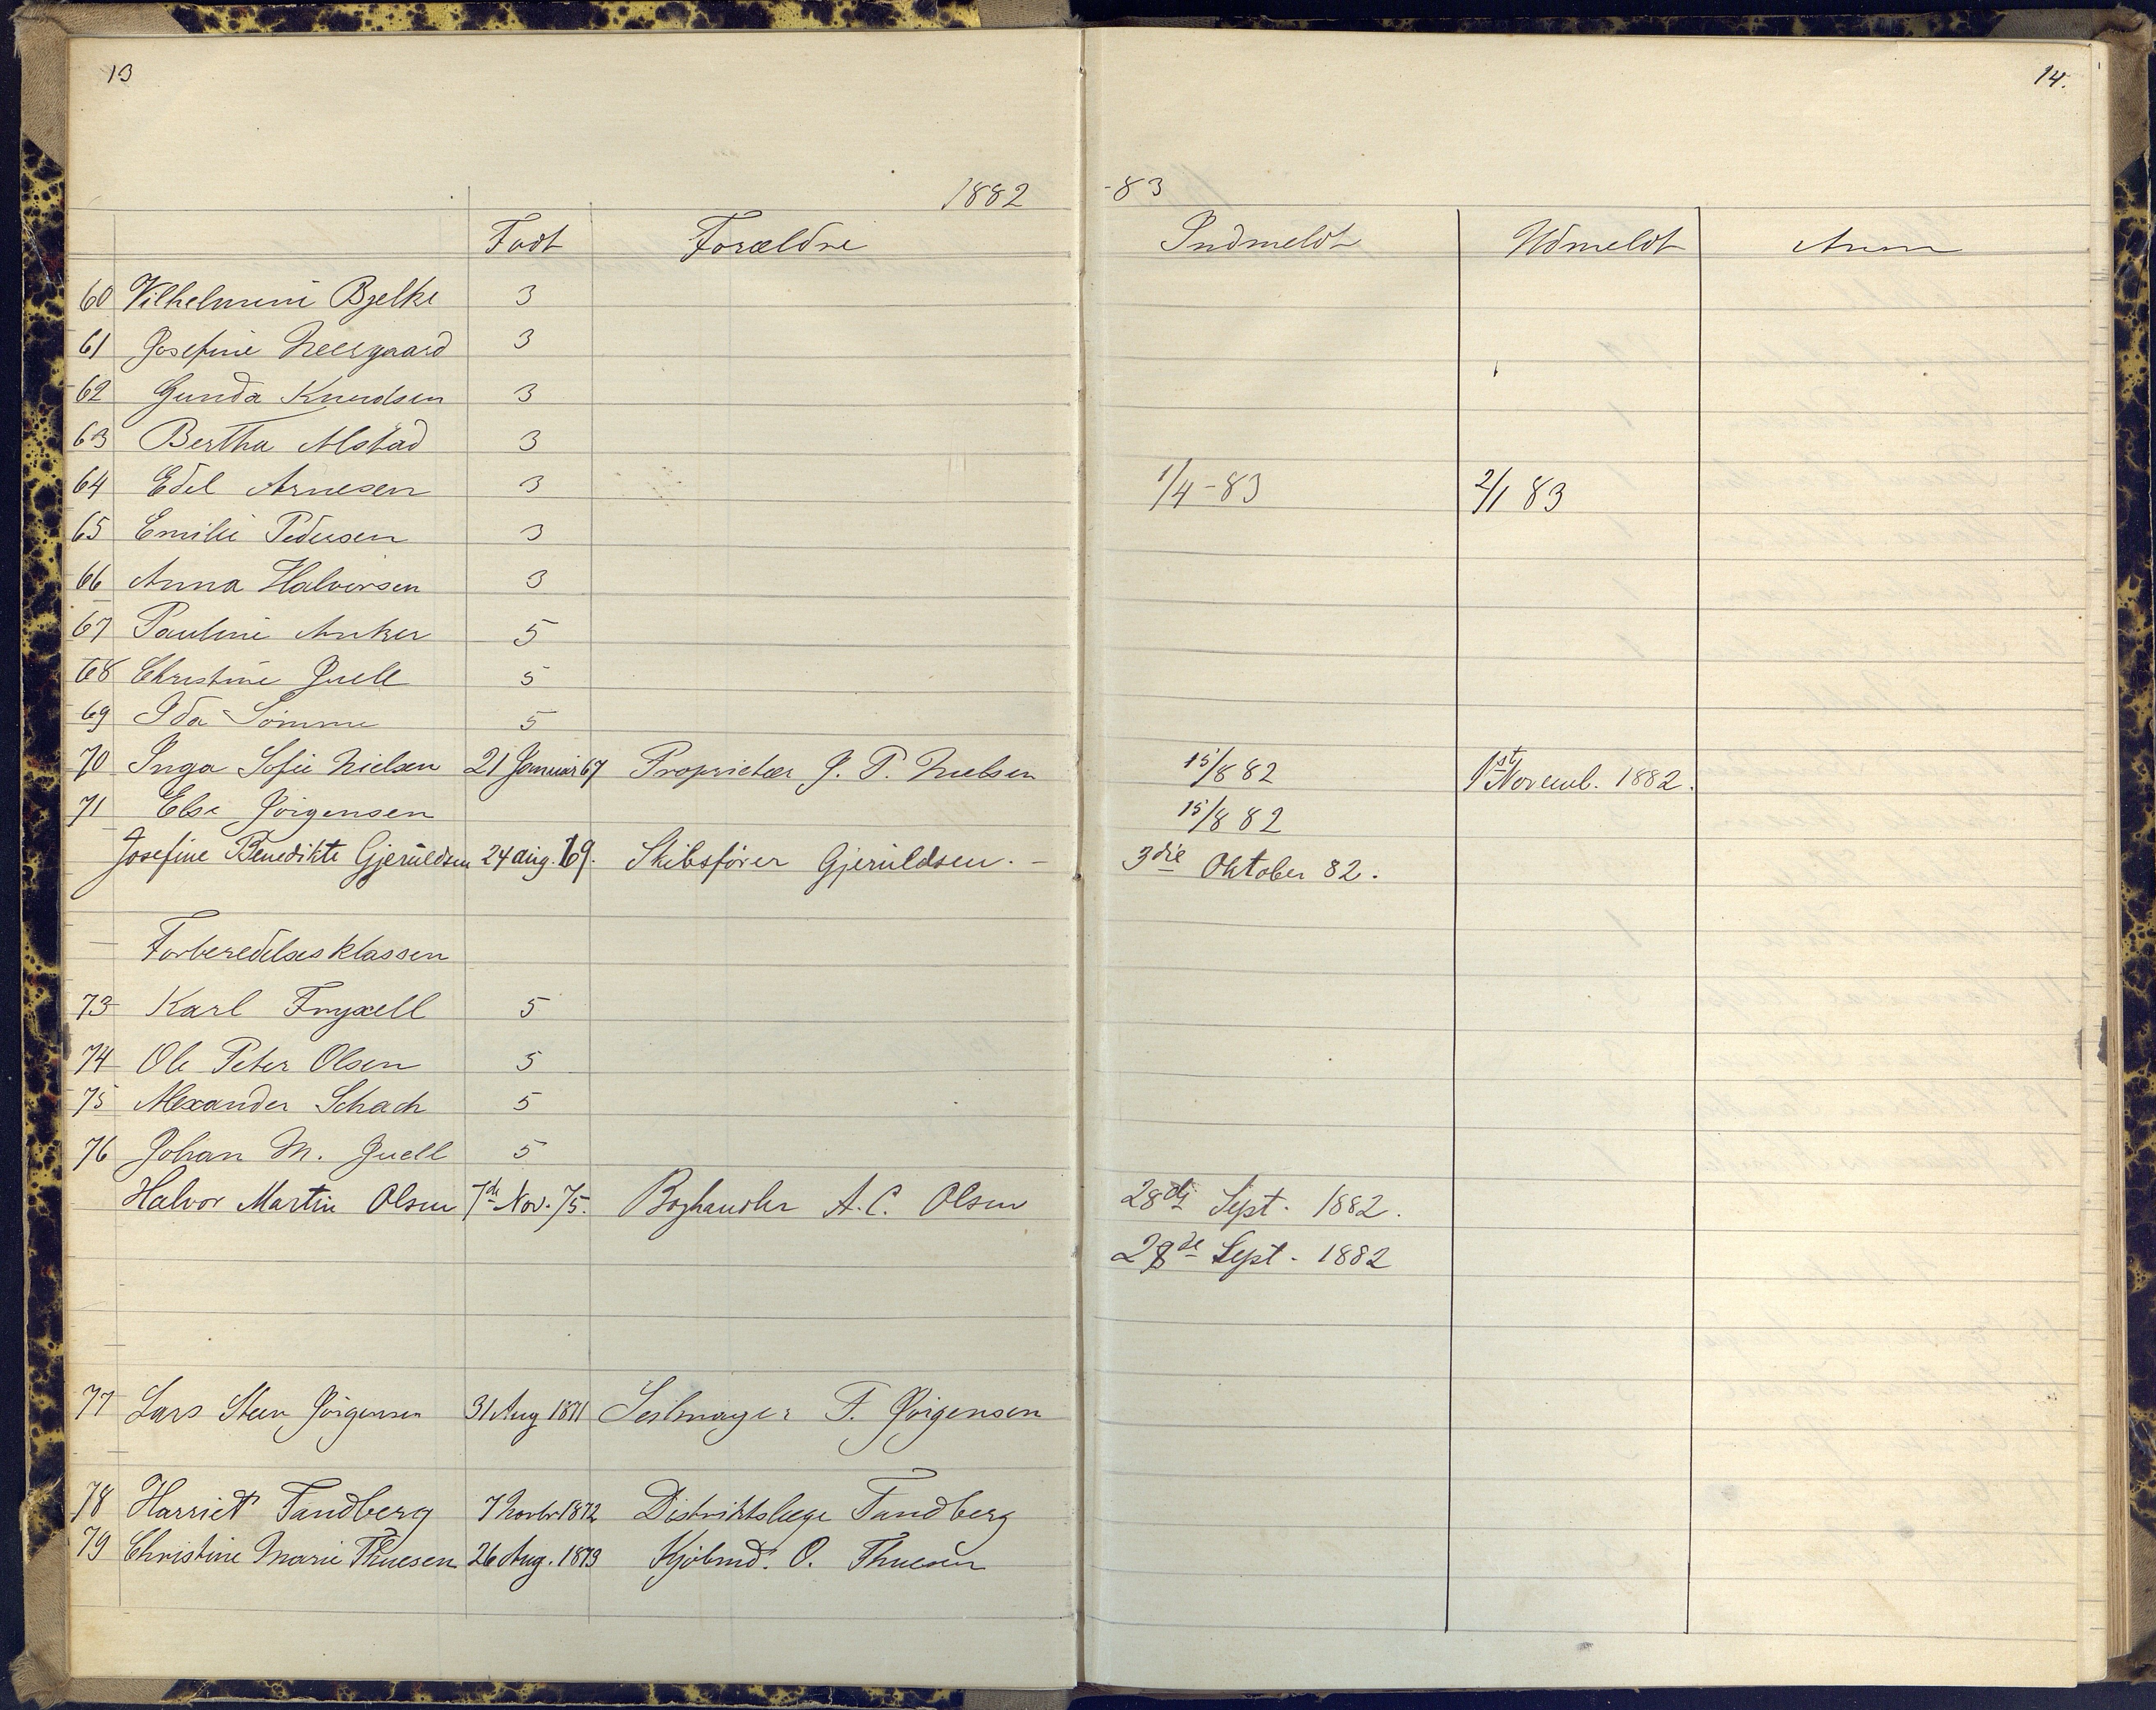 13
14.
1882 -83
Født Forældre Indmeldt Udmeldt Anm
60 Vilhelmine Bjelke 3
61 Josefine Neergaard 3
62 Gunda Knudsen 3
63 Bertha Alstad 3
64 Edel Arnesen 3 1/4 - 83 2/1 83
65 Emilie Pedersen 3
66 Anna Halvorsen 3
67 Pauline Anker 5
68 Christine Juell 5
69 Ida Sømme 5
70 Inga Sofie Nielsen 21 Januar 67 Proprietær J. P. Nielsen 15/8 82 1st Novemb. 1882.
71 Else Jørgensen 15/8 82
Josefine Benedikte Gjeruldsen 24 aug. 69. Skibsfører Gjeruldsen. - 3die Oktober 82.
Forberedelsesklassen
73 Karl Fryxell 5
74 Ole Peter Olsen 5
75 Alexander Schach 5
76 Johan M. Juell 5
Halvor Martin Olsen 7de Nov. 75. Boghandler A. C. Olsen 28de Sept. 1882.
28de Sept. 1882
77 Lars Steen Jørgensen 31 Aug 1871 Seilmager F. Jørgensen
78 Harriet Tandberg 7 Novbr 1872 Distriktslæge Tandberg
79 Christine Marie Thuesen 26 Aug. 1873 Kjøbmd. O. Thuesen